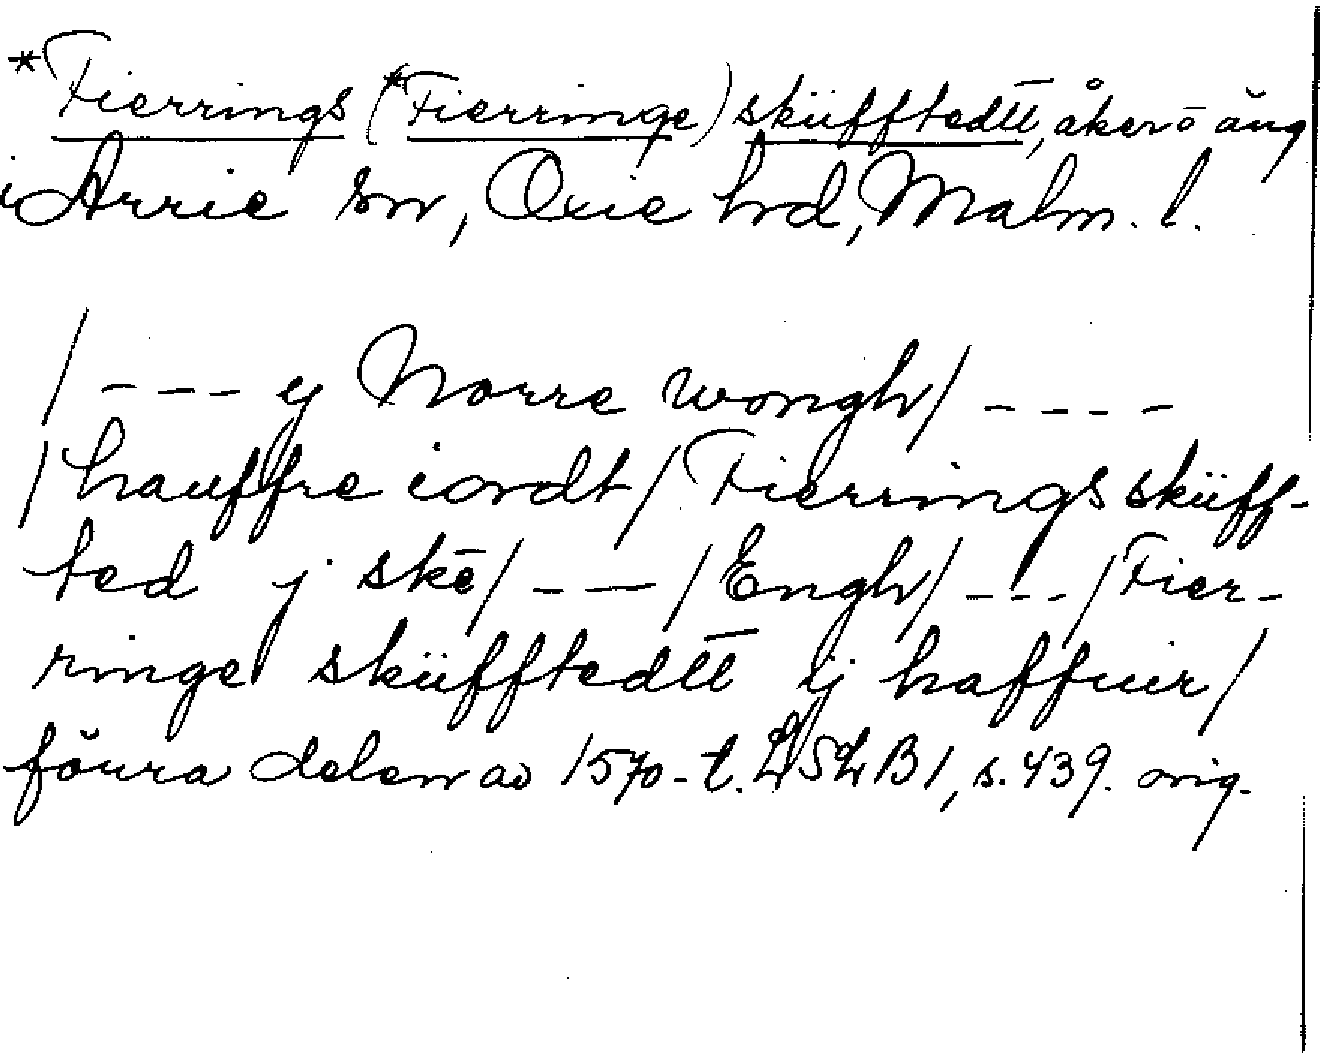 *Fierrings (*Fierringe) sküfftedtt, åker o äng
i Arrie sn, Oxie hrd, Malm. l.
/ - - - ij Norre wongh / - - - -
/ hauffre iordt / Fierrings sküff-
ted j skē / - - - / Engh / - - - / Fier-
ringe sküfftedtt ij haffuir /
förra delen av 1570-t. LSLB1, s. 439. orig.